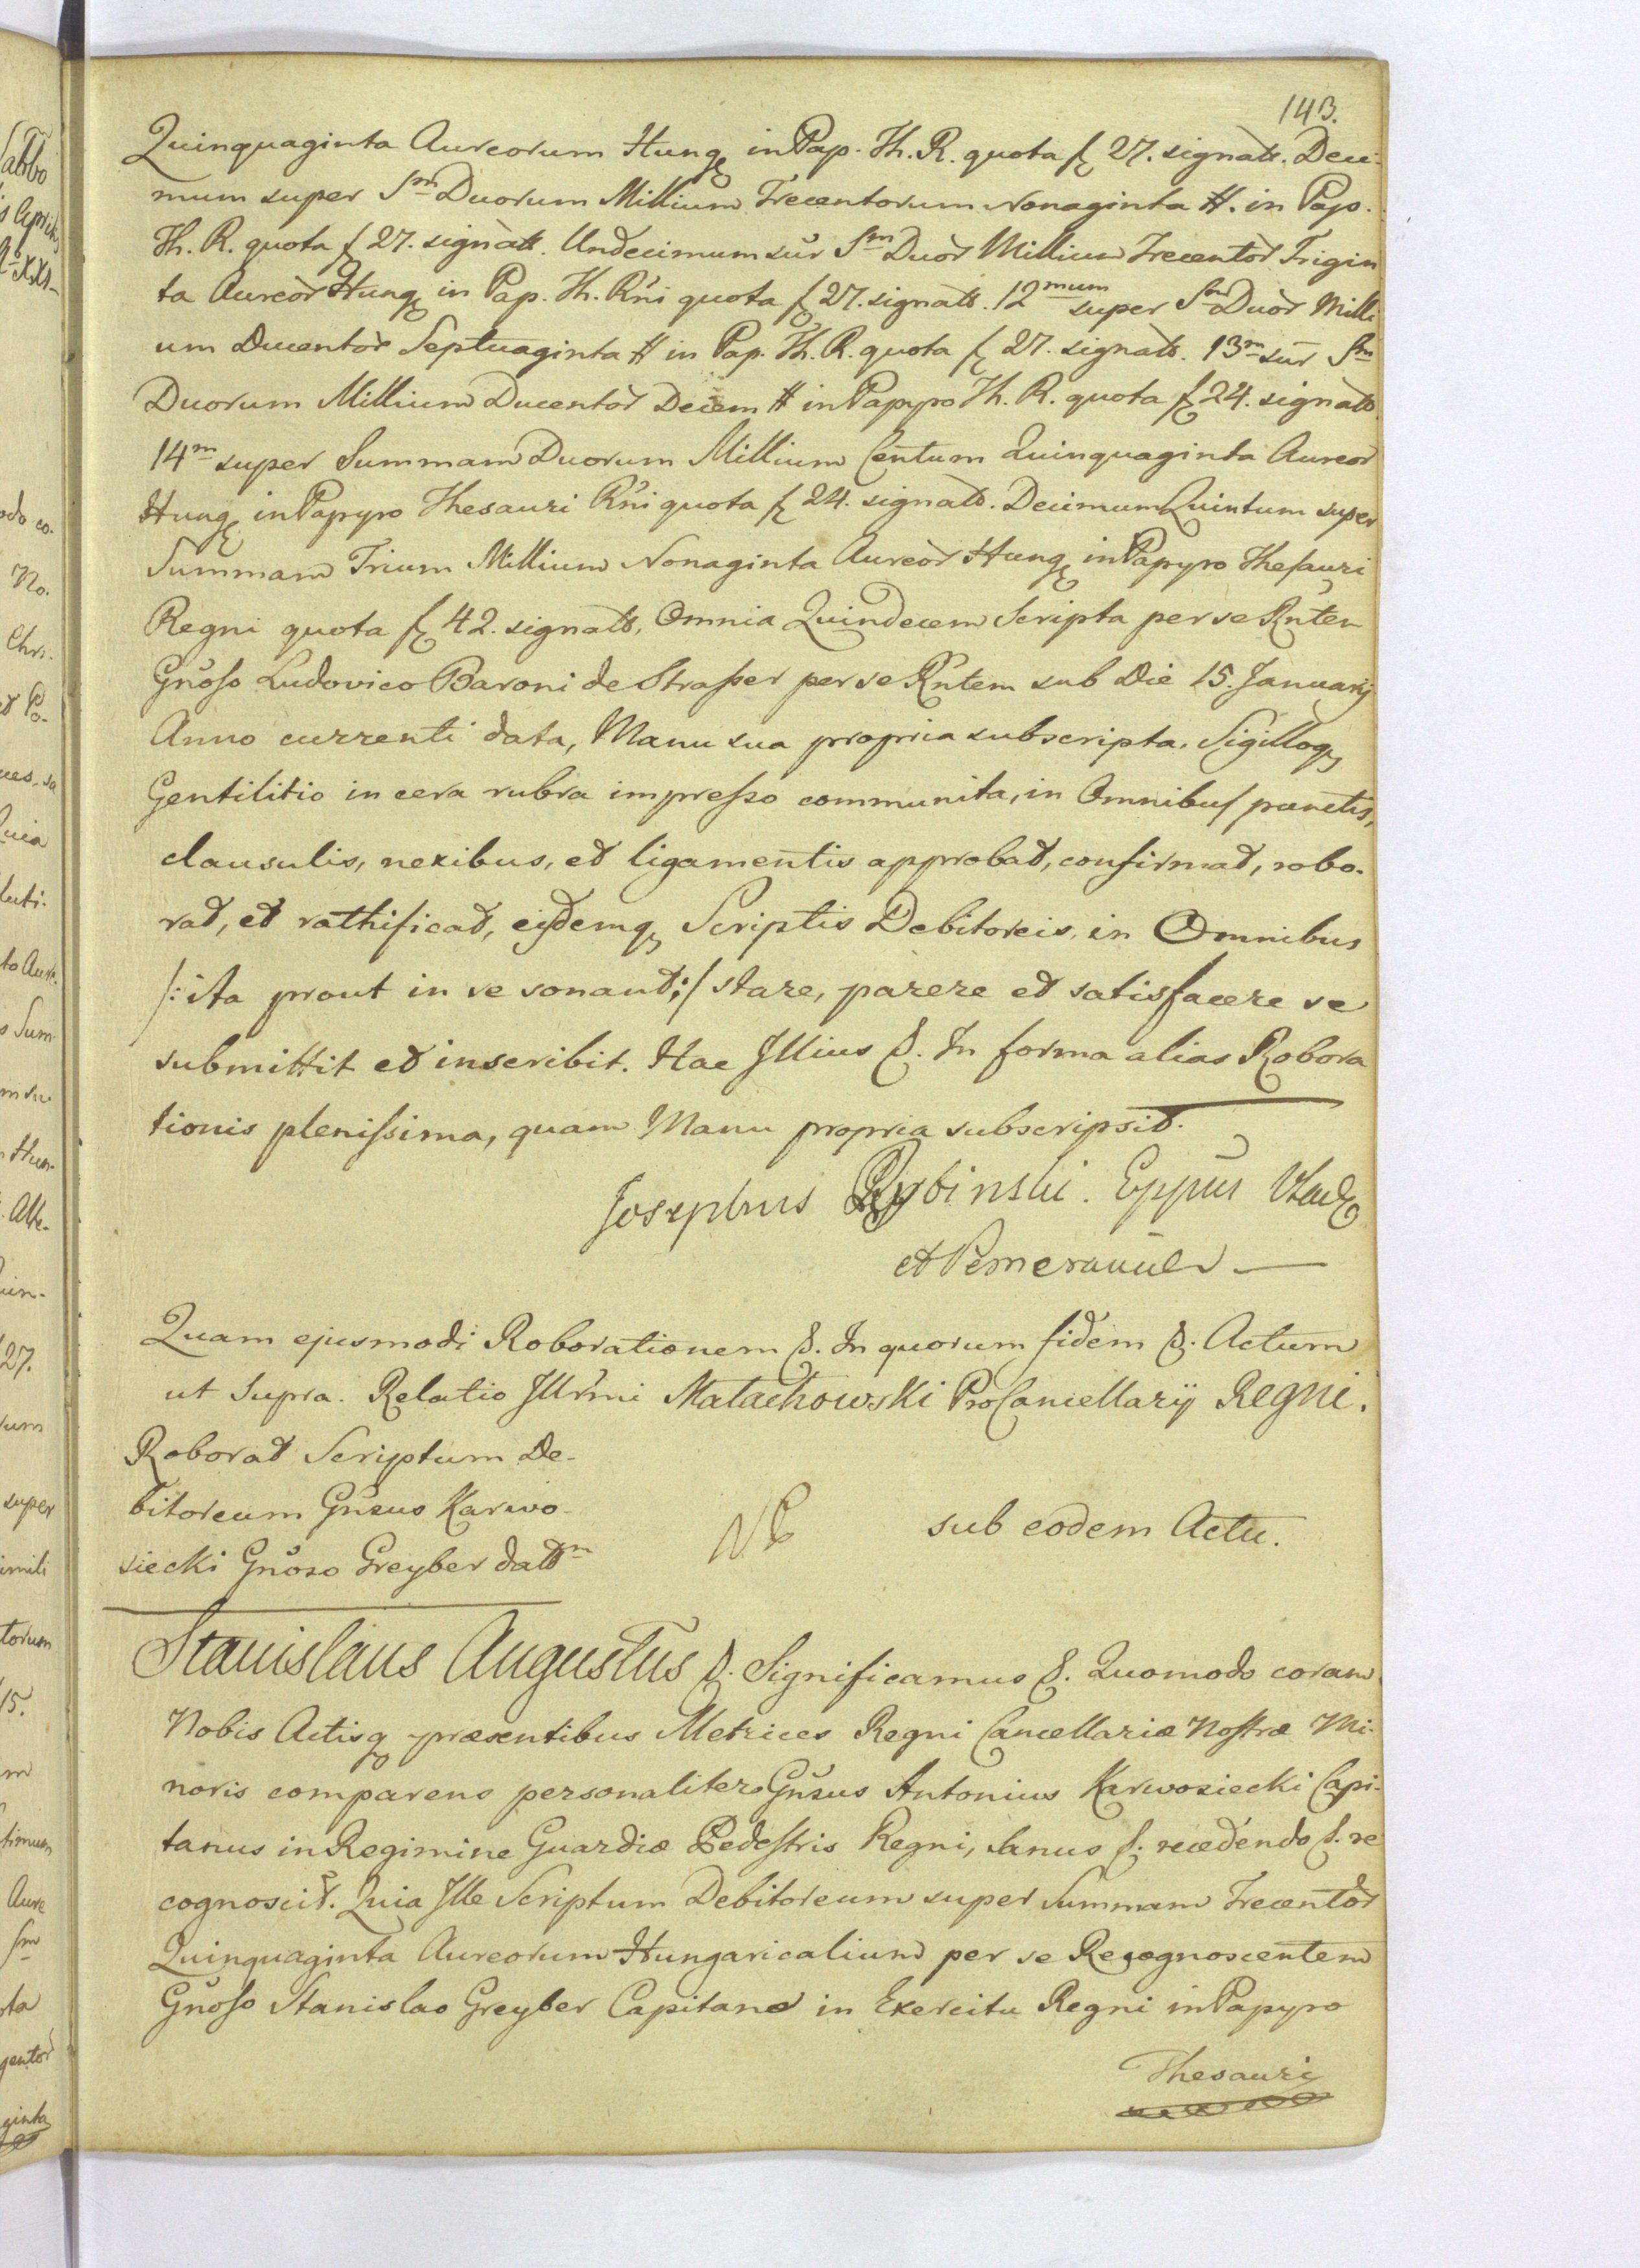 143.
Quinquaginta Aureorum Hung. in Pap. Th. R. quota fl 27. signatt. Deci-
mum super Sm̄ Duorum Millium Trecentorum Nonaginta #. in Pap.
Th. R. quota fl 27. signatt. Undecimum sūr Sm̄ Duor̀ Millium Trecentor̀ Trigin
ta Aureor̀ Hung. in Pap. Th. Rńi quota fl 27. signatt. 12mum super Sm̄ Duor̀ Milli
um Ducentor̀ Septuaginta # in Pap. Th. R. quota fl 27. signatt. 13m̄ sūr Sm̄
Duorum Millium Ducentor̀ Decem # in Papyro Th. R. quota fl 24. signatt
14m̄ super Summam Duorum Millium Centum Quinquaginta Aureor̀
Hung. in Papyro Thesauri Rńi quota fl 24. signatt. Decimum Quintum super
Summam Trium Millium Nonaginta Aureor̀ Hung. in Papyro Thesauri
Regni quota fl 42. signatt, Omnia Quindecem Scripta per se Rntem
Gnoso Ludovico Baroni de Strasser per se Rntem sub Die 15. Januarij
Anno currenti data, Manu sua propria subscripta, Sigilloq;
Gentilitio in cera rubra impresso communita, in Omnibus punctis,
clausulis, nexibus, et ligamentis approbat, confirmat, robo-
rat, et rathificat, eisdemq; Scriptis Debitoreis, in Omnibus
/: ita prout in se sonant :/ stare, parere et satisfacere se
submittit et inscribit. Hac Illius &. In forma alias Robora
tionis plenissima, quam Manu propria subscripsit.
Josephus Rybinski. Eppūs Vlad.
et Pomeraniæ
Quam ejusmodi Roborationem &. In quorum fidem &. Actum
ut Supra. Relatio Illrmi Małachowski ProCancellarij Regni.
Roborat Scriptum De-
bitoreum Gnsus Karwo-
siecki Gnoso Greyber dattm
NB
sub eodem Actu.
Stanislaus Augustus &. Significamus &. Quomodo coram
Nobis Actisq præsentibus Metrices Regni Cancellariæ Nostræ Mi-
noris comparens personaliter Gnsus Antonius Karwosiecki Capi-
tanus in Regimine Guardiæ Pedestris Regni, Sanus &. recedendo &. re
cognoscit. Quia Ille Scriptum Debitoreum super Summam Trecentor̀
Quinquaginta Aureorum Hungaricalium per se Recognoscentem
Gnoso Stanislao Greyber Capitano in Exercitu Regni in Papyro
Thesauri